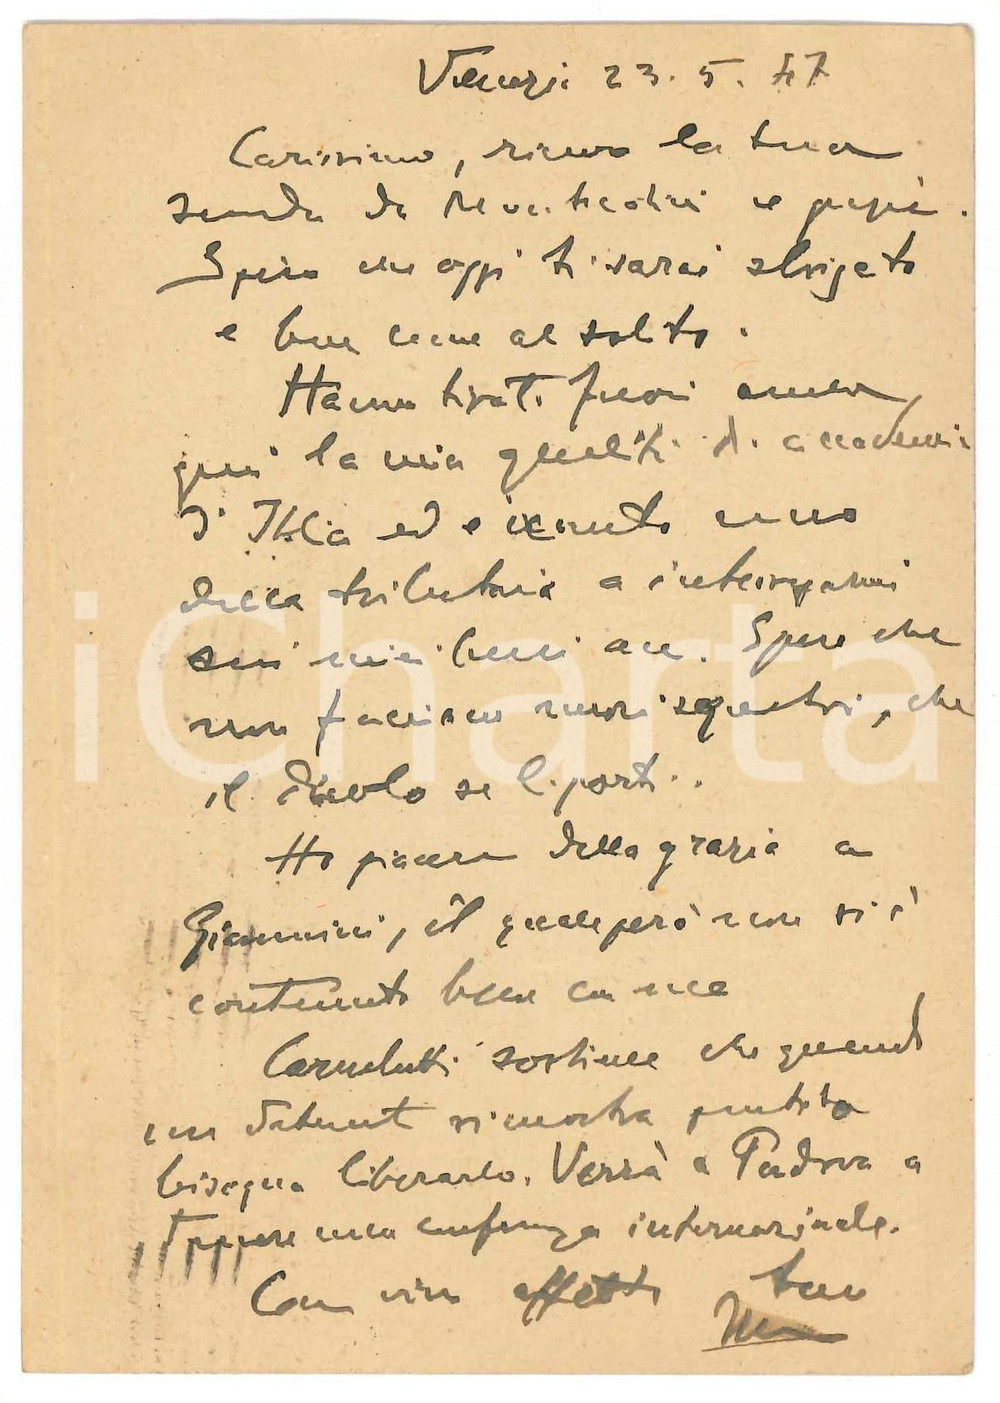 Venezia 23.5.47
Carissimo, ricevo la tua
di
Spero che oggi ti sarai sbrigato
e bene come al solito.
Hanno tirati fuori ancora
qui la mia qualità di accademico
d'Italia ed è venuto uno
della tributaria a interrogarmi
sui miei beni ecc. Spero che
non facciano nuovi sequestri, che
il diavolo se li porti..
Ho piacere della grazia a
Giannini, il quale però non si è
contenuto bene con me
Carnelutti sostiene che quando
un detenuto si mostra pentito
bisogna liberarlo. Verrà a Padova a
tenere una conferenza internazionale.
Con vivo affetto tuo
iCharta